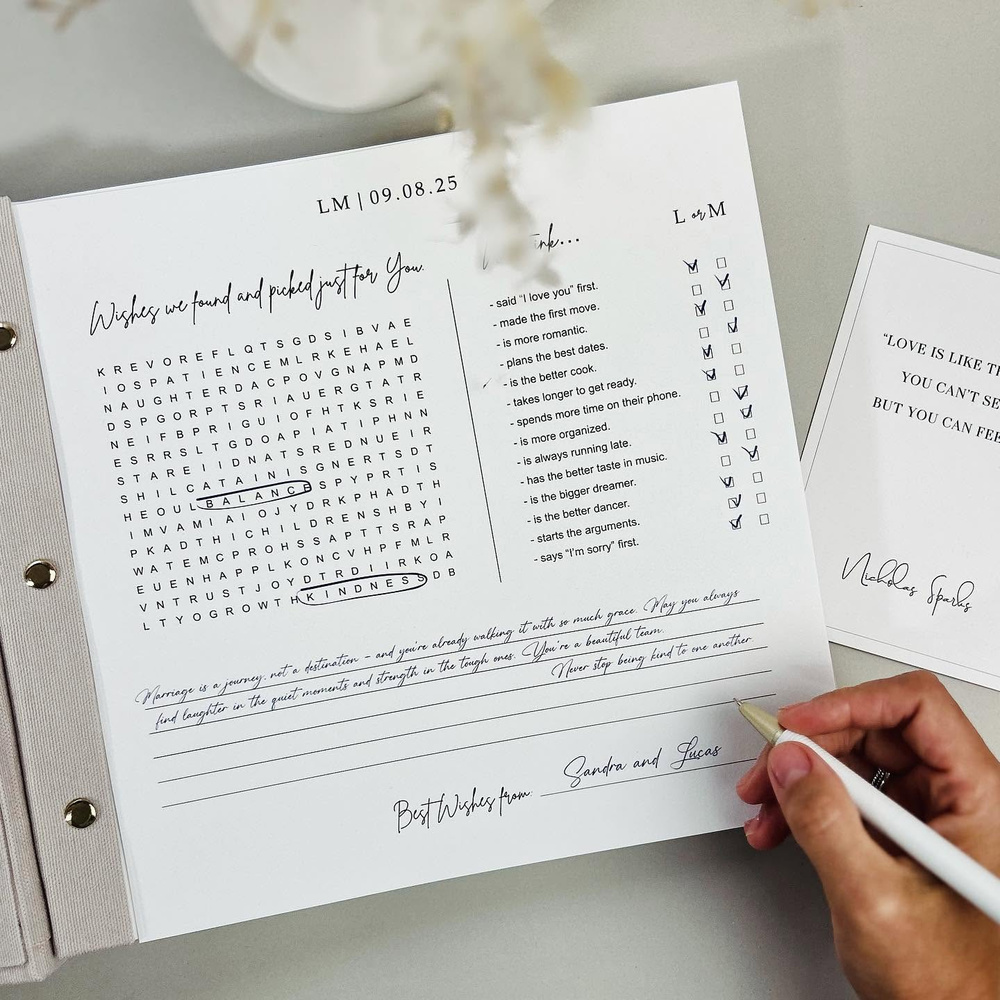 LM | 09.08.25
Wishes we found and picked just for You.
K R E V O R E F L Q T S G D S I B V A E
I O S P A T I E N C E M L R K E H A E L
N A U G H T E R D A C P O V G N A P M D
D S P G O R P T S R I A U E R G T A T R
N E I F B P R I G U I O F H T K S R I E
E S R R S L T G D O A P I A T I P H N N
S T A R E I I D N A T S R E D N U E I R
S H I L C A T A I N I S G N E R T S D T
H E O U L B A L A N C E S P Y P R T I S
I M V A M I A I O J Y D R K P H A D T H
P K A D T H I C H I L D R E N S H B Y I
W A T E M C P R O H S S A P T T S R A P
E U E N H A P P L K O N C V H P F M L R
V N T R U S T J O Y D T R D I I R K O A
L T Y O G R O W T H K I N D N E S S D B
L or M
- said "I love you" first.
- made the first move.
- is more romantic.
- plans the best dates.
- is the better cook.
- takes longer to get ready.
- spends more time on their phone.
- is more organized.
- is always running late.
- has the better taste in music.
- is the bigger dreamer.
- is the better dancer.
- starts the arguments.
- says "I'm sorry" first.
Marriage is a journey, not a destination – and you're already walking it with so much grace. May you always
find laughter in the quiet moments and strength in the tough ones. You're a beautiful team.
Never stop being kind to one another
Best Wishes from: Sandra and Lucas
"LOVE IS LIKE
YOU CAN'T
BUT YOU CAN
Nicholas Sparks